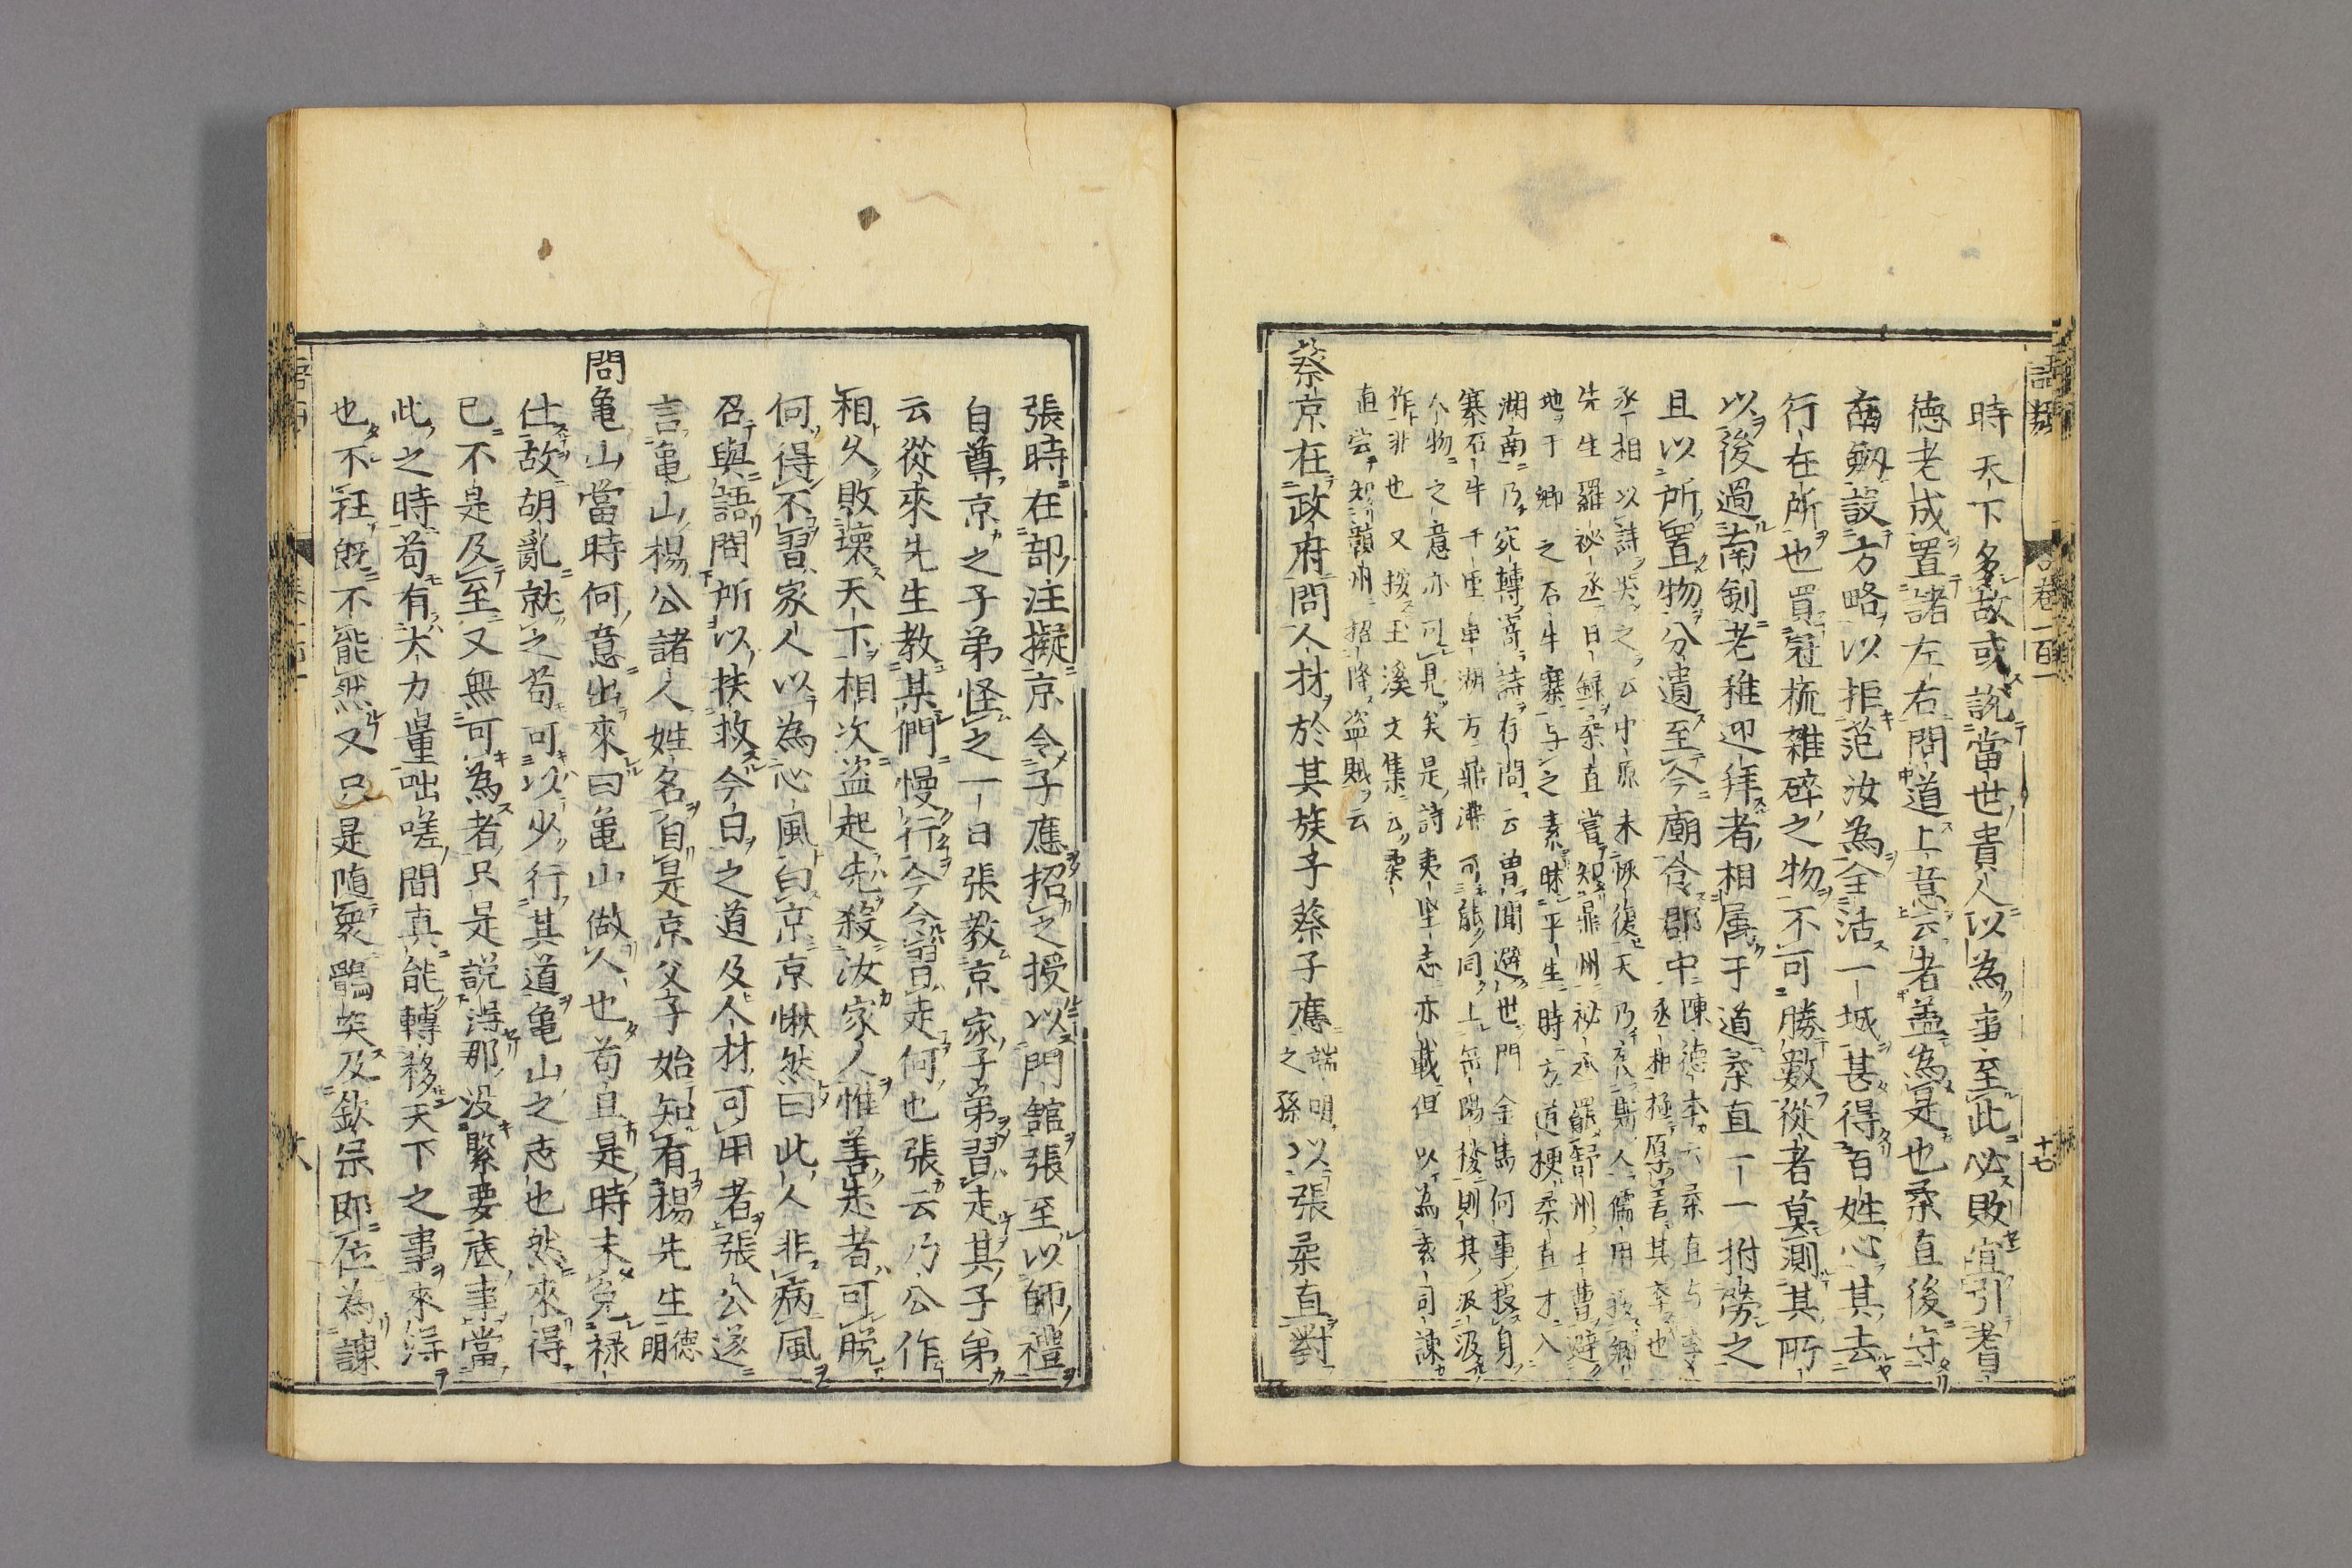 語類
卷一百一
十七
時天下多故或說當世貴人以為事至此必敗宜引耆
德老成置諸左右問道上意云者蓋為是也柔直後守
南劒設方略以拒范汝為全活一城甚得百姓心其去
行在所也買冠梳雜碎之物不可勝數從者莫測其所
以後過南劍老稚迎拜者相属于道柔直一一拊勞之
且以所置物分遺至今廟食郡中陳德本云柔直与李
丞相極厚善其卒也
丞相以詩哭之云中原未恢復天乃喪斯人儒用按鄉
先生羅祕丞日録柔直嘗知鼎州祕丞罷舒州士曹避
地于鄉之石牛寨与之素昧平生時方道梗柔直才入
湖南乃宛轉寄詩存問云曾聞避世門金馬何事投身
寨石牛千里重湖方鼎沸可能同上岳陽樓則其汲汲
人物之意亦可見矣是詩夷堅志亦載但以為袁司諫
作非也又按玉溪文集云柔
直嘗知贛州招降盗賊云
蔡京在政府問人材於其族子蔡子應端明
之孫以張柔直對
張時在部注擬京令子應招之授以門館張至以師禮
自尊京之子弟怪之一日張教京家子弟習走其子弟
云從來先生教某們慢行今令習走何也張云乃公作
相久敗壞天下相次盗起先殺汝家人惟善走者可脱
何得不習家人以為心風白京京愀然曰此人非病風
召與語問所以扶救今日之道及人材可用者張公遂
言亀山楊公諸人姓名自是京父子始知有楊先生德
明
問亀山當時何意出來曰亀山做人也苟且是時未免禄
仕故胡亂就之苟可以少行其道亀山之志也然來得
已不是及至又無可為者只是説得那没緊要底事當
此之時苟有大力量咄嗟間真能轉移天下之事來得
也不枉既不能然又只是隨衆鶻突及欽宗即位為諫